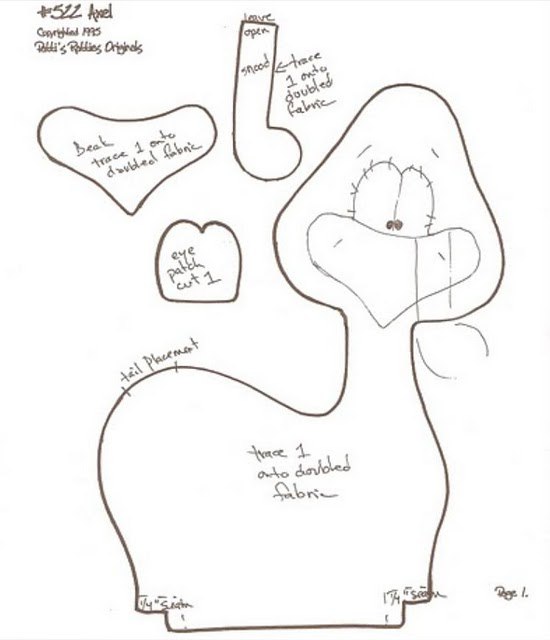 #522 Axel
Copyrighted 1995
Patti's Ratties Originals
leave
open
snood
trace
1 onto
doubled
fabric
Beak
trace 1 onto
doubled fabric
eye
patch
cut 1
tail placement
trace 1
onto doubled
fabric
1/4" seam
1/4" seam
Page 1.